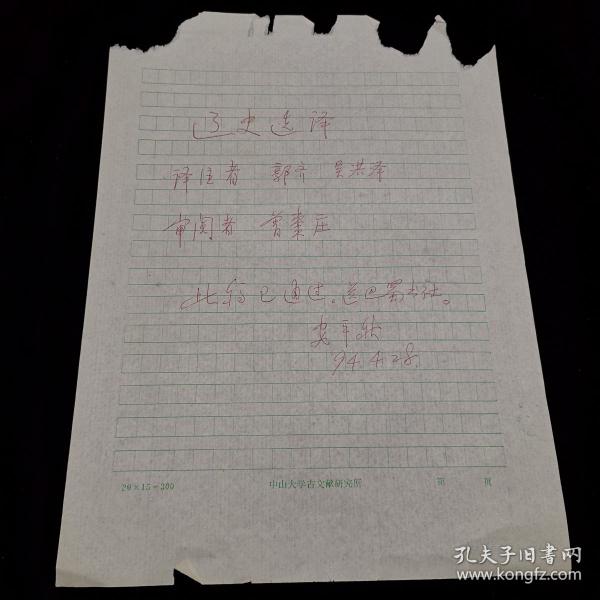 辽史选译
译注者 郭齐 吴洪泽
审阅者 曾枣庄
此稿已通过。送巴蜀书社。
安平秋
94.4.28.
20×15=300 中山大学古文献研究所 第 页
孔夫子旧书网
www.kongfz.com